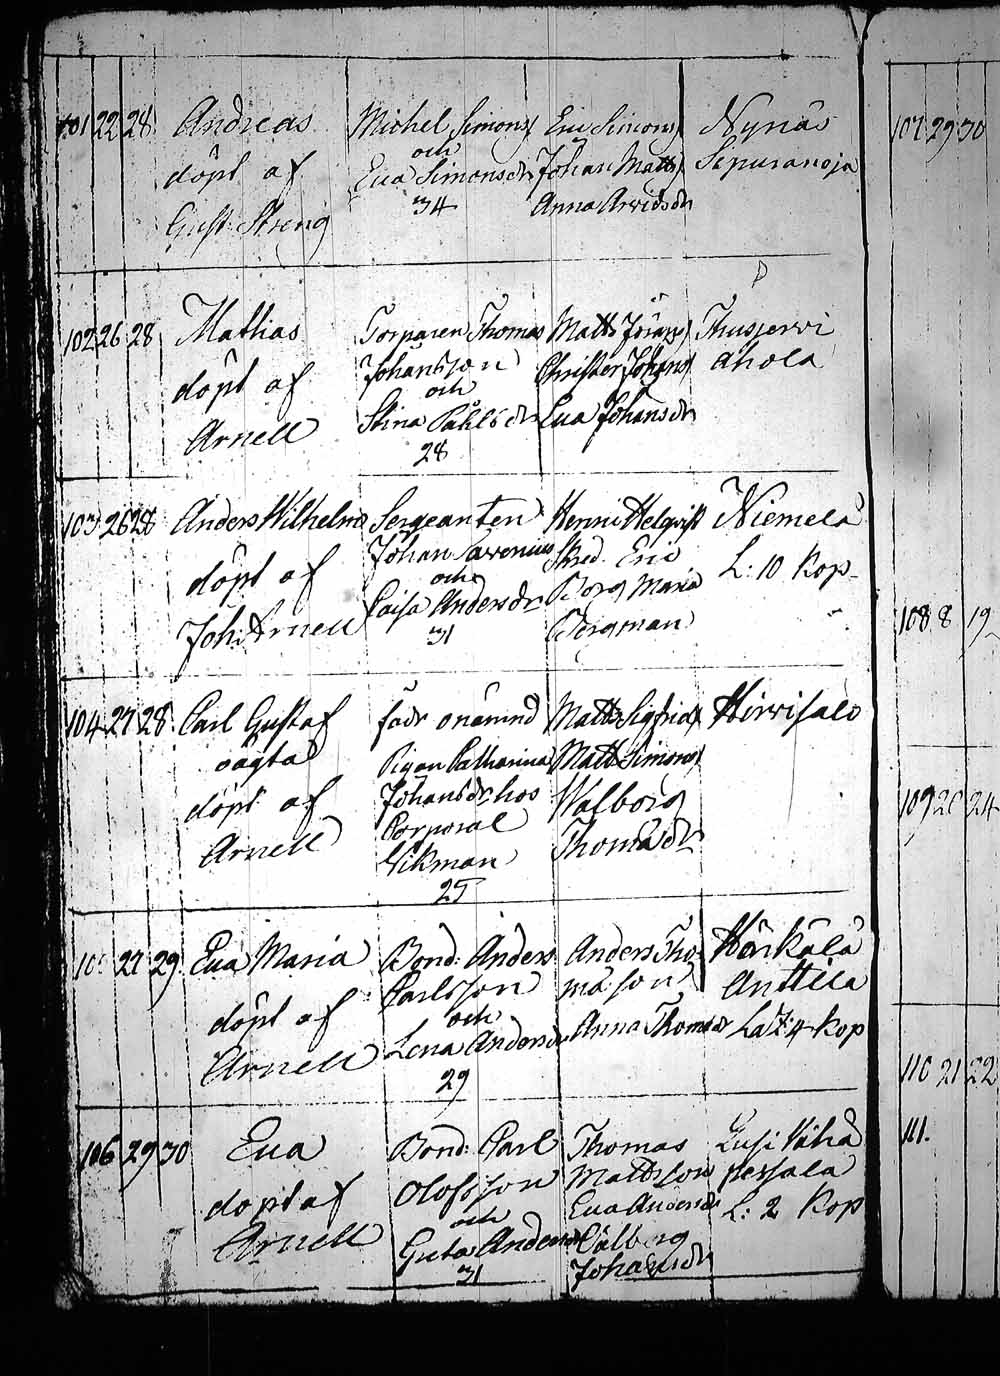 101 22 28 Andreas
döpt af
Gust: Streng
Michel Simons
och
Eva Simonsdr
34
Eric Simons
Johan Matts
Anna Arvidsdr
Nynäs
Sepuranoja
102 26 28 Mathias
döpt af
Arnell
Torparen Thomas
Johansson
och
Stina Påhlsdr
28
Matts Jörans
Christer Johans
Eva Johansdr
Thusjervi
ahola
103 26 28 Anders Wilhelm
döpt af
Joh: Arnell
Sergeanten
Johan
och
Caisa Andersdr
31
Henric Helqvist
Skred. Eric
Borg Maria
Bergman
Niemelä
L: 10 Kop
104 27 28 Carl Gustaf
oägta
döpt af
Arnell
fadr onämnd
Pigan Catharina
Johansdr hos
Corporal
Vikman
25
Matts Sigfrids
Matts Simons
Walborg
Thomasdr
Hirvisalo
27 29 Eva Maria
döpt af
Arnell
Bond: Anders
Carlsson
och
Lena Andersdr
29
Anders Tho
masson
Anna Thomasdr
Härkälä
Anttila
4 Kop
106 29 30 Eva
döpt af
Arnell
Bond: Carl
Olofsson
och
Greta Andersdr
31
Thomas
Mattsson
Eva Andersdr
Valborg
Johansdr
Lusi Vähä
Pessala
L: 2 Kop
107 29 30
108 8 19
109 20 24
110 21 22
111.